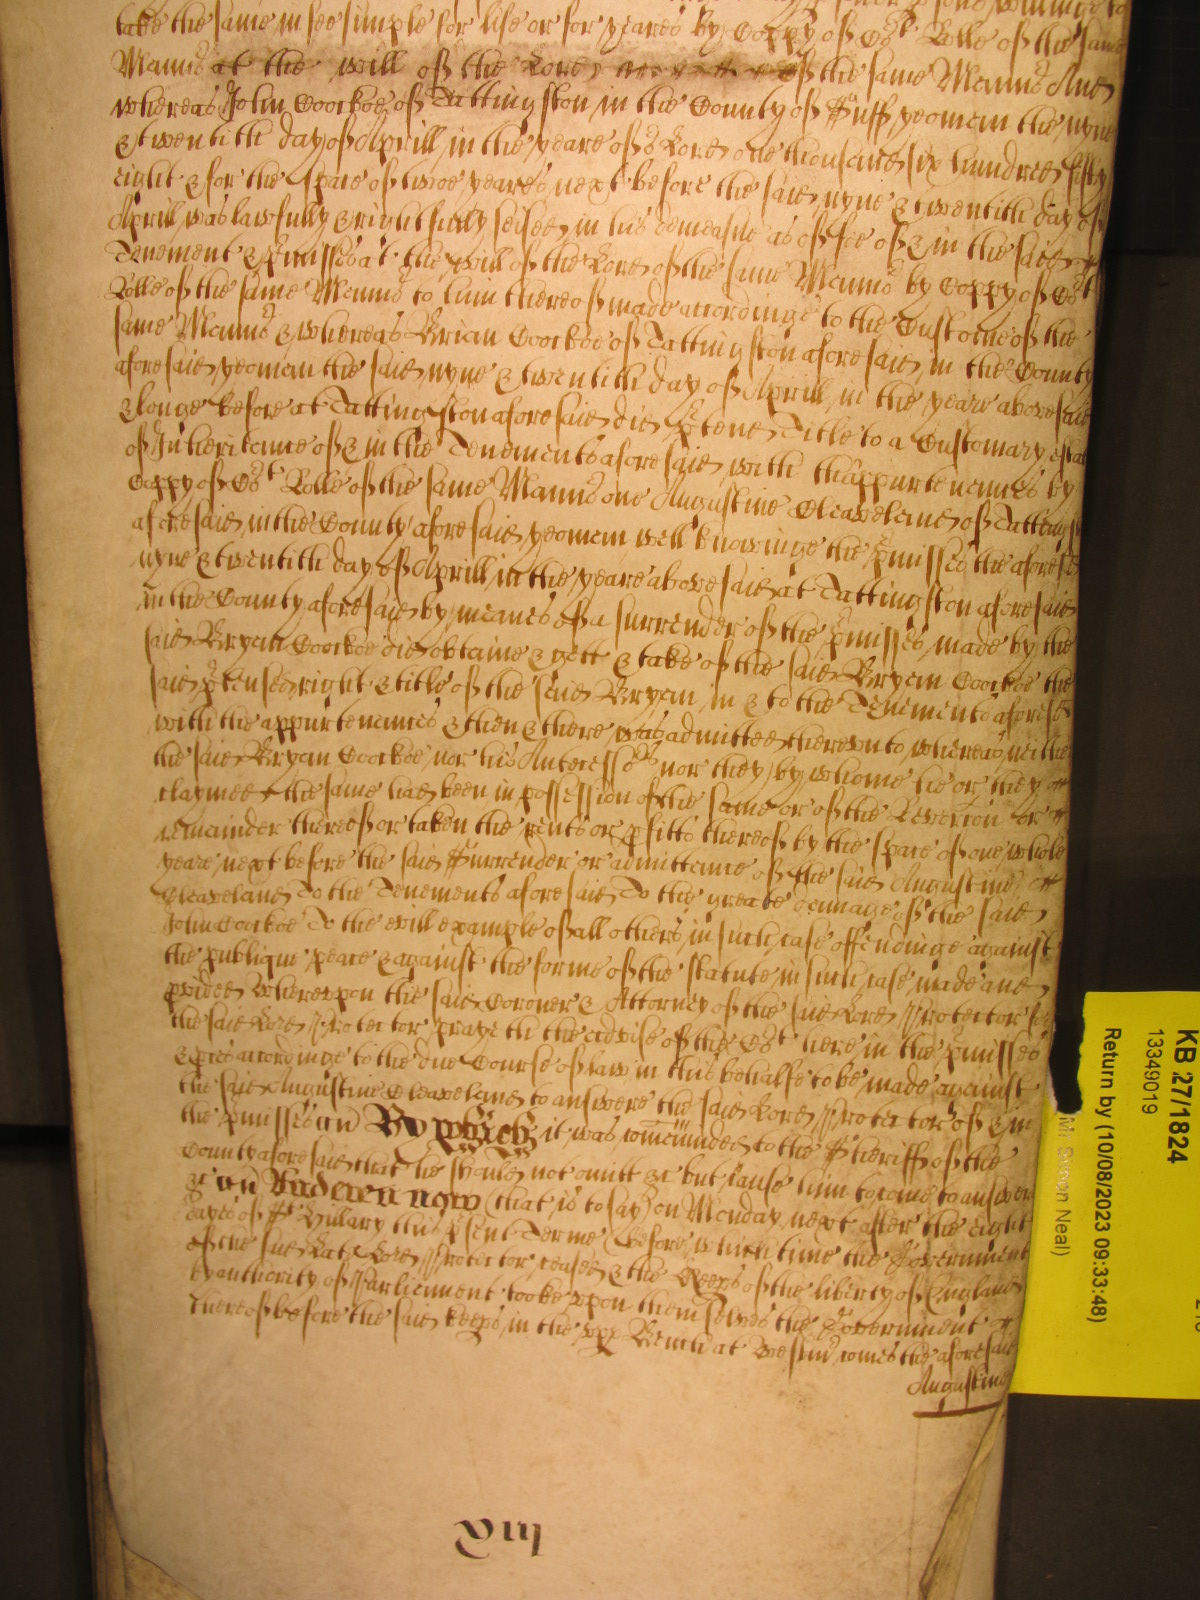 take the same in fee simple for life or for yeares by Coppy of Cort Rolle of the same
Mannor at the will of the Lord of the same Mannor And
whereas John Coockoe of Tattingston in the County of Suff yeoman the nyne
& twentith day of Aprill in the yeare of or Lord one thousand six hundred fifty
eight & for the space of twoe yeares next before the said nyne & twentith day of
Aprill was lawfully & rightfully seised in his demeasne as of fee of & in the said
Tenement & pmisses at the will of the Lord of the same Mannor by Coppy of Cort
Rolle of the same Mannor to him thereof made accordinge to the Custome of the
same Mannor & whereas Brian Coockoe of Tattingston aforesaid in the County
aforesaid yeoman the said nyne & twentith day of Aprill in the yeare abovesaid
& longe before at Tattingston aforesaid did ptend Title to a Customary estat
of Inheritance of & in the Tenements aforesaid with thappurtenances by
Coppy of Cort Rolle of the same Mannor one Augustine Cleaveland of Tattingst
aforesaid in the County aforesaid yeoman well knowinge the pmisses the aforesd
nyne & twentith day of Aprill in the yeare abovesaid at Tattingston aforesaid
in the County aforesaid by meanes of a surrender of the pmisses made by the
said Bryan Coockoe did obtaine & gett & take of the said Bryan Coockoe the
said ptensed right & title of the said Bryan in & to the Tenements aforesd
with the appurtenances & then & there was admitted therevnto whereas neither
the said Bryan Coockoe nor his Antecessors nor they by whome he or they
claymed the same had been in possession of the same or of the Revercion or
remainder thereof or taken the rents or pfitts thereof by the space of one whole
yeare next before the said Surrender or admittance of the said Augustine
Cleaveland To the Tenements aforesaid To the greate damage of the said
John Coockoe To the evill example of all others in such case offendinge against
the publique peace & against the forme of the statute in such case made and
pvided Wherevpon the said Coroner & Attorney of the said Lord Protector for
the said Lord Protector prayeth the advise of the Cort here in the pmisses
& pces accordinge to the due Course of law in this behalfe to be made against
the said Augustine Cleaveland to answere the said Lord Protector of & in
the pmisses and By which it was comaunded to the Sheriffe of the
County aforesaid that he should not omitt &c but cause him to come to answer
&c And now (that is to say) on Monday next after the eight
dayes of St Hillary this psent Terme (before which time the Government
of the said late Lord Protector ceased & the Keeps of the liberty of England
by authority of Parliament tooke vpon themselves the Government
thereof before the said keeps in the vpp Bench at Westmr comes the aforesaid
Augustine
VIII
KB 27/1824
13349019
Return by (10/08/2023 09:33:48)
(Mr Simon Neal)